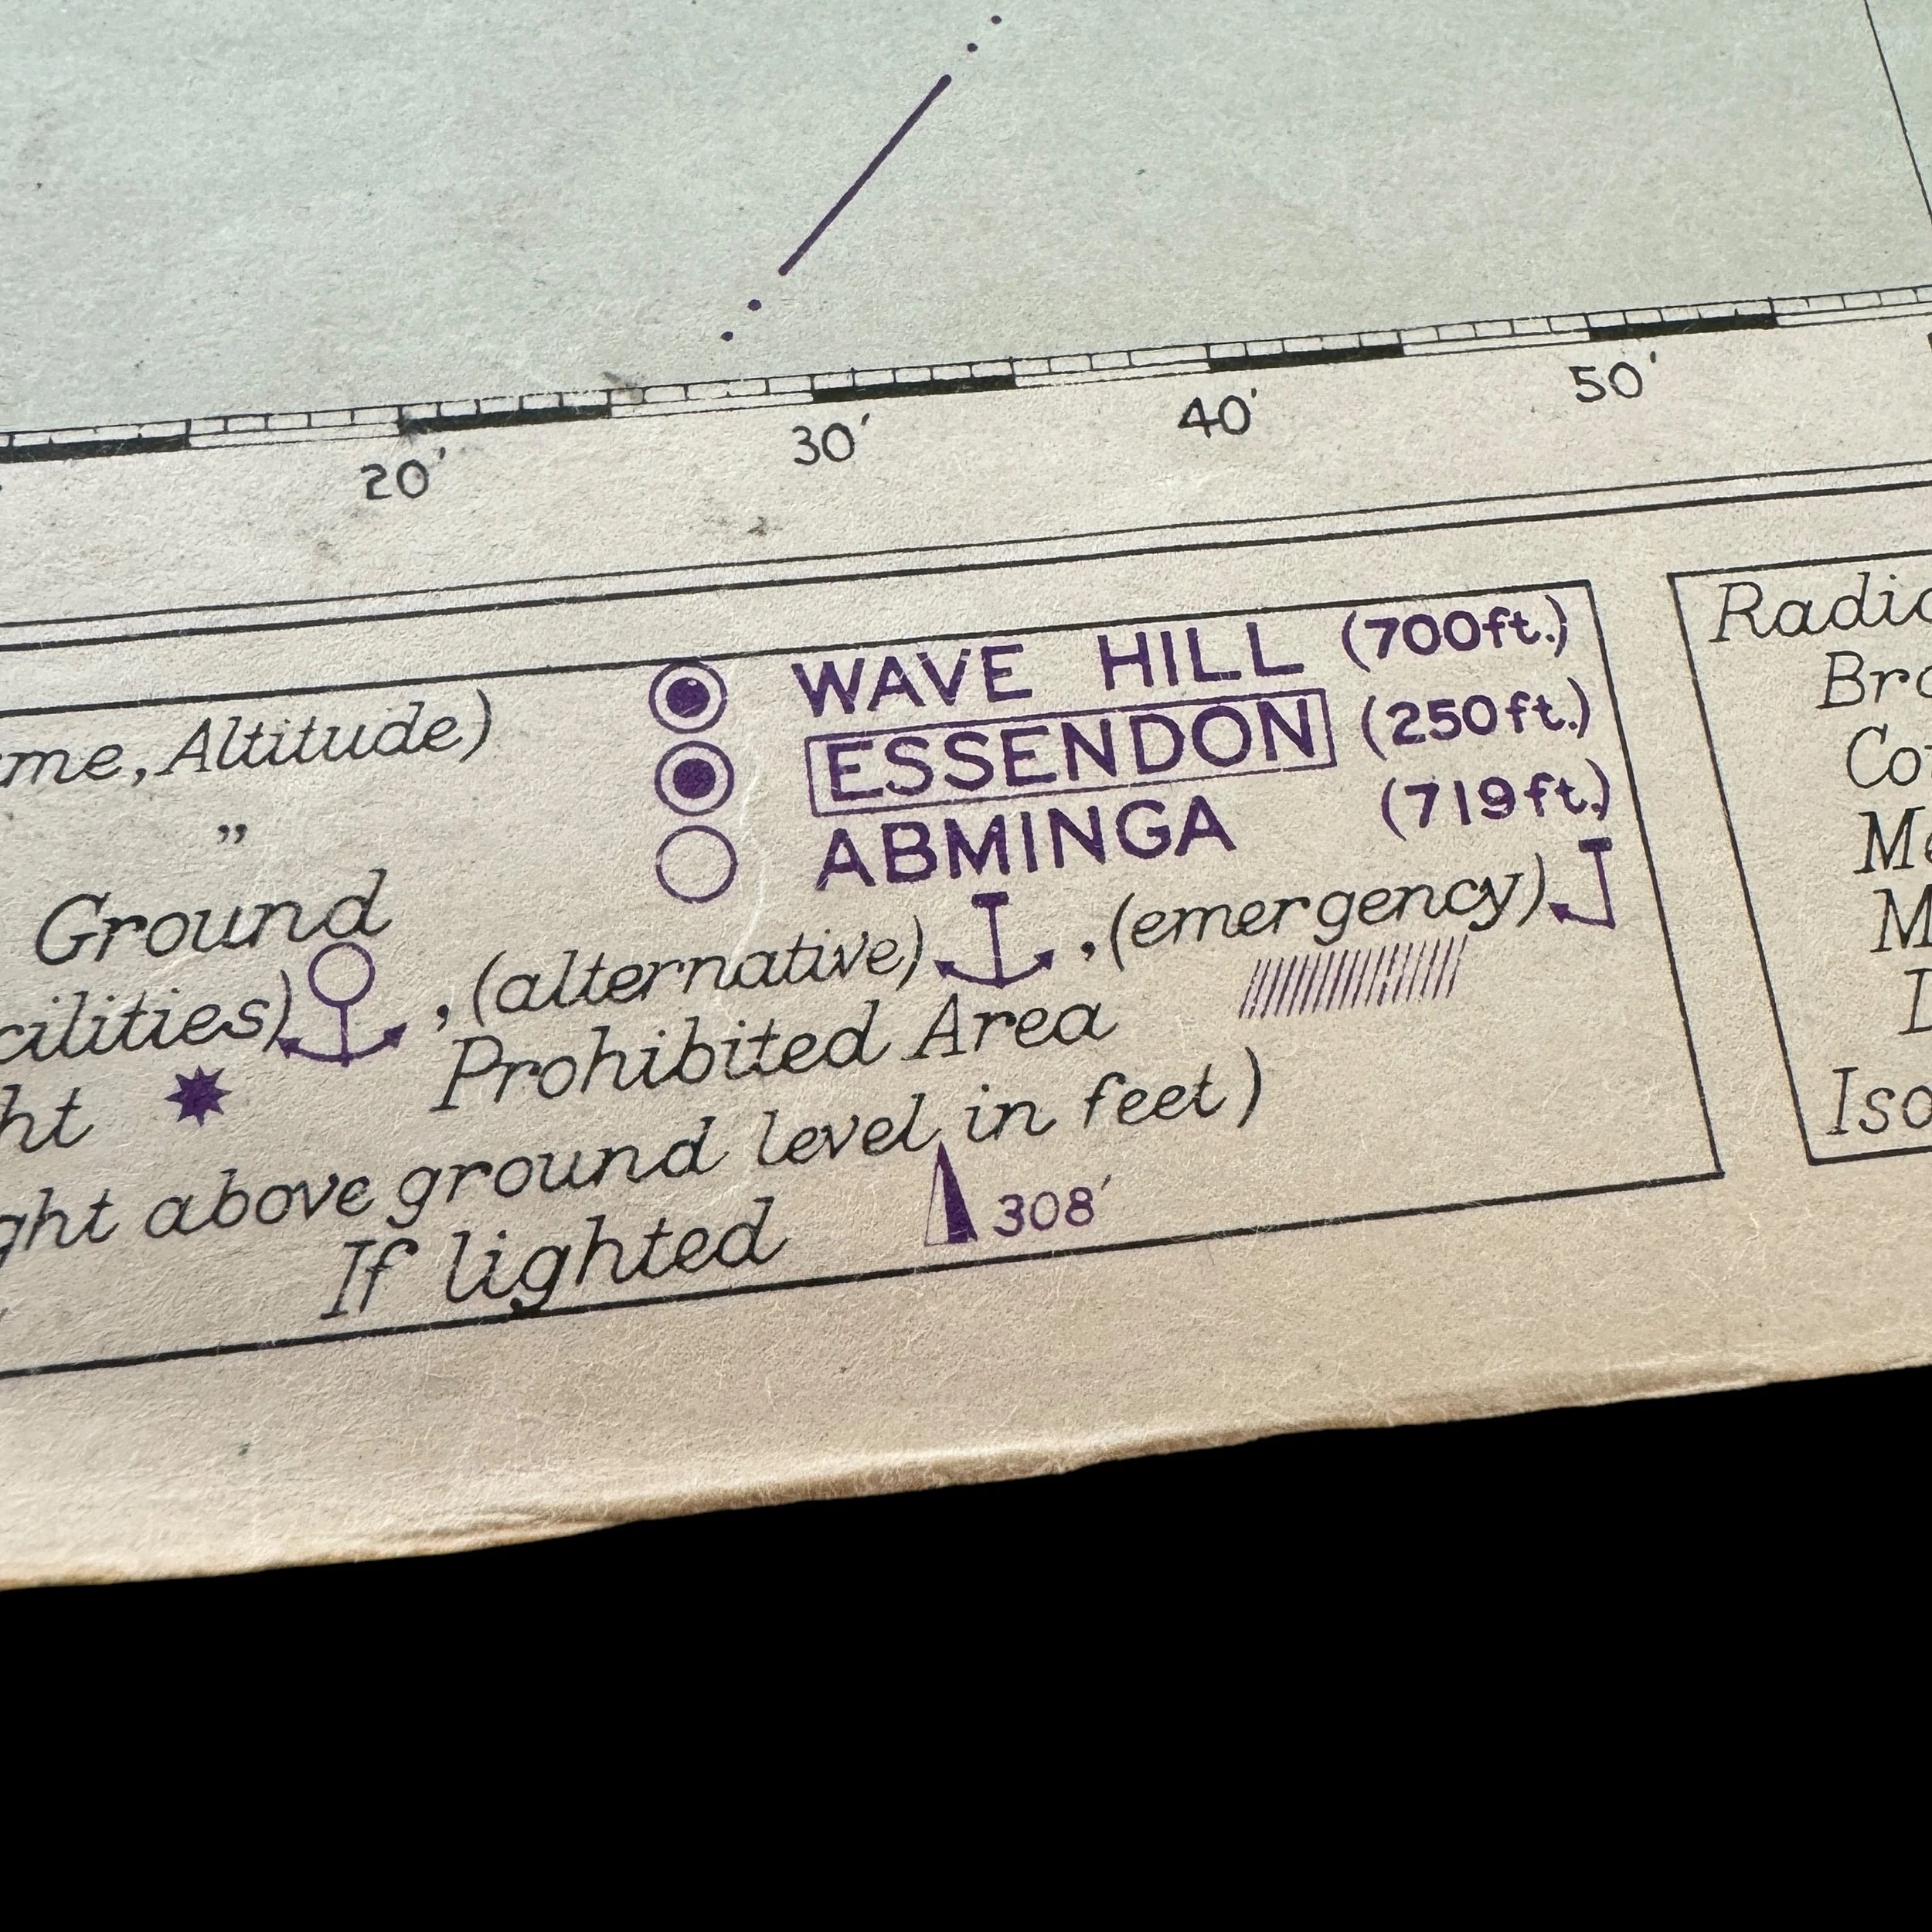 20′ 30′ 40′ 50′
WAVE HILL (700ft.)
me, Altitude) ESSENDON (250ft.)
” ABMINGA (719ft.)
Ground
cilities) , (alternative) , (emergency)
ht Prohibited Area
ght above ground level in feet)
If lighted 308′
Radio
Bro
Co
M
M
Iso